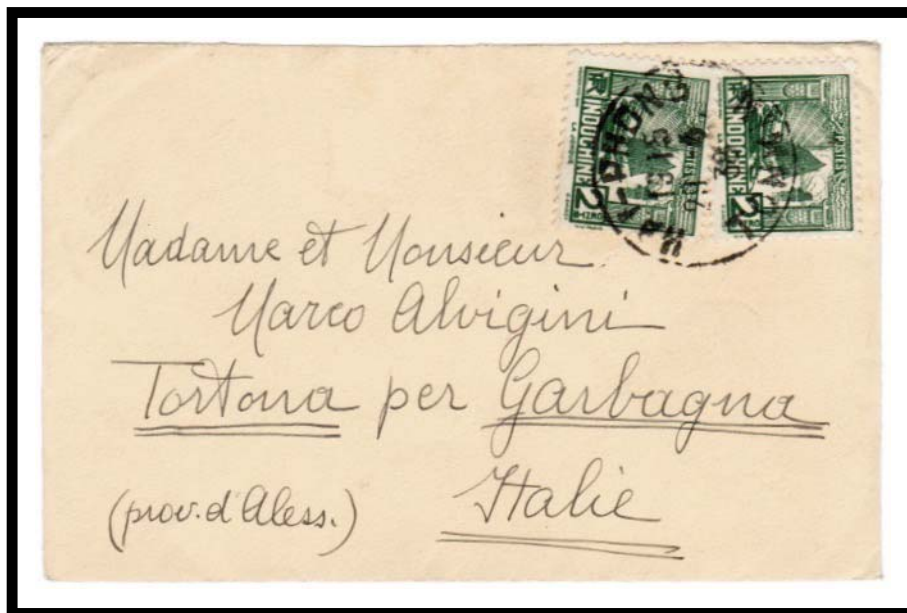 RF INDOCHINE
POSTES
2
RF INDOCHINE
POSTES
2
HAIPHONG
Madame et Monsieur
Marco Alvigini
Tortona per Garbagna
Italie
(prov. d'Aless.)